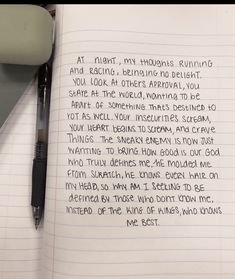 At night, my thoughts running
and racing, bringing no delight.
You look at others approval, you
stare at the world, wanting to be
apart of something thats destined to
rot as well. Your insecurities scream,
your heart begins to scream, and crave
things. The sneaky enemy is now just
wanting to bring. How good is our God
who truly defines me, he molded me
from scratch, he knows even hair on
my head, so why am I seeking to be
defined by those who dont know me,
instead of the King of Kings, who knows
me best.